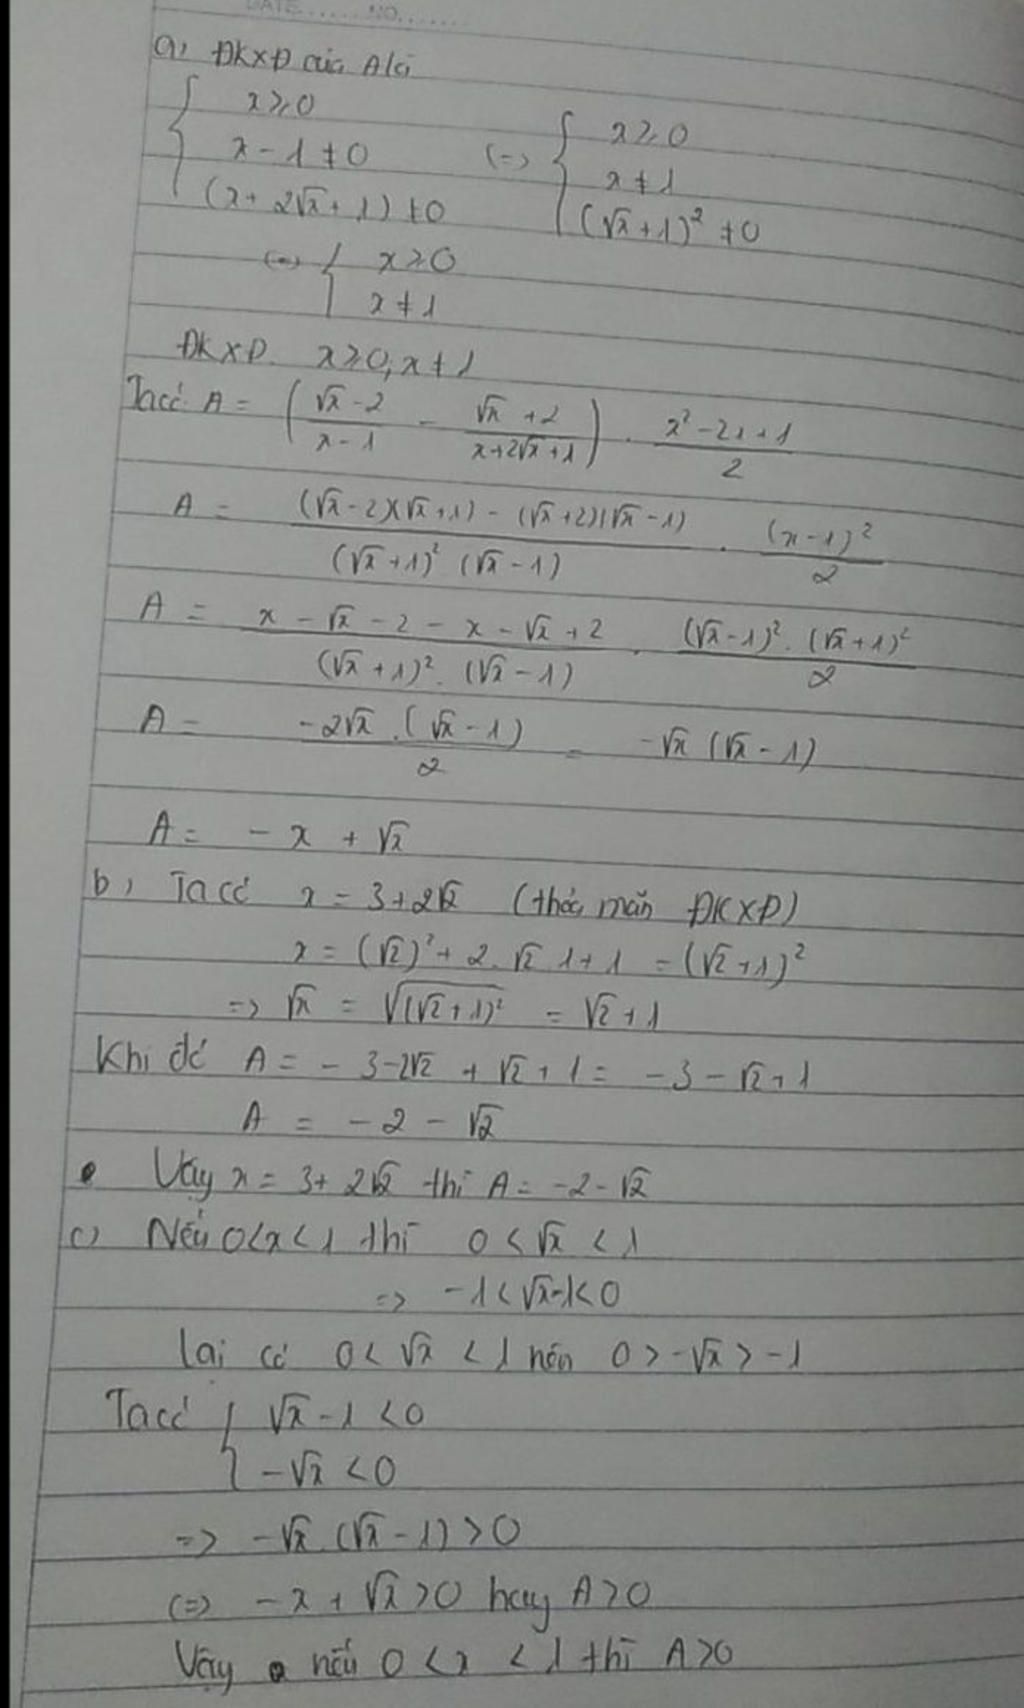 DATE...... NO........
a, ĐKXĐ của A là
{ x ≥ 0
x - 1 ≠ 0
(x + 2√x + 1) ≠ 0
(=> { x ≥ 0
x ≠ 1
(√x + 1)² ≠ 0
(=> { x ≥ 0
x ≠ 1
ĐKXĐ. x ≥ 0, x ≠ 1
Ta có: A = ( (√x - 2)/(x - 1) - (√x + 2)/(x + 2√x + 1) ) . (x² - 2x + 1)/2
A = ((√x - 2)(√x + 1) - (√x + 2)(√x - 1))/((√x + 1)² (√x - 1)) . (x - 1)²/2
A = (x - √x - 2 - x - √x + 2)/((√x + 1)² . (√x - 1)) . ((√x - 1)² . (√x + 1)²)/2
A = (-2√x . (√x - 1))/2 = -√x (√x - 1)
A = - x + √x
b, Ta có x = 3 + 2√2 (thỏa mãn ĐKXĐ)
x = (√2)² + 2.√2 1 + 1 = (√2 + 1)²
=> √x = √((√2 + 1)²) = √2 + 1
Khi đó A = - 3 - 2√2 + √2 + 1 = -3 - √2 + 1
A = - 2 - √2
Vậy x = 3 + 2√2 thì A = -2 - √2
c) Nếu 0 < x < 1 thì 0 < √x < 1
=> -1 < √x - 1 < 0
lại có 0 < √x < 1 nên 0 > -√x > -1
Ta có { √x - 1 < 0
-√x < 0
=> -√x . (√x - 1) > 0
(=> - x + √x > 0 hay A > 0
Vậy nếu 0 < x < 1 thì A > 0